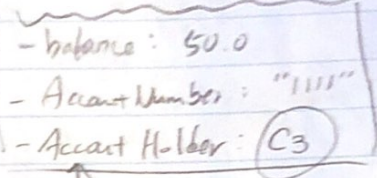 - balance: 50.0
- Account Number: "1111"
- Account Holder: C3